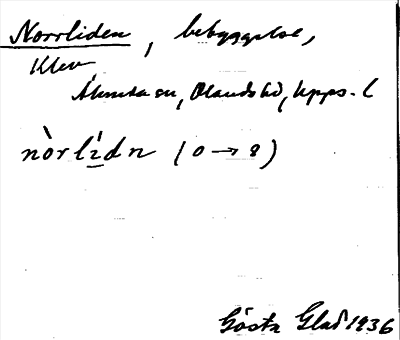 Norrliden, bebyggelse,
Klev
Älmeta sn, Olands hd, Upps. l
nòrlídn (o → 8)
Gösta Glad 1936